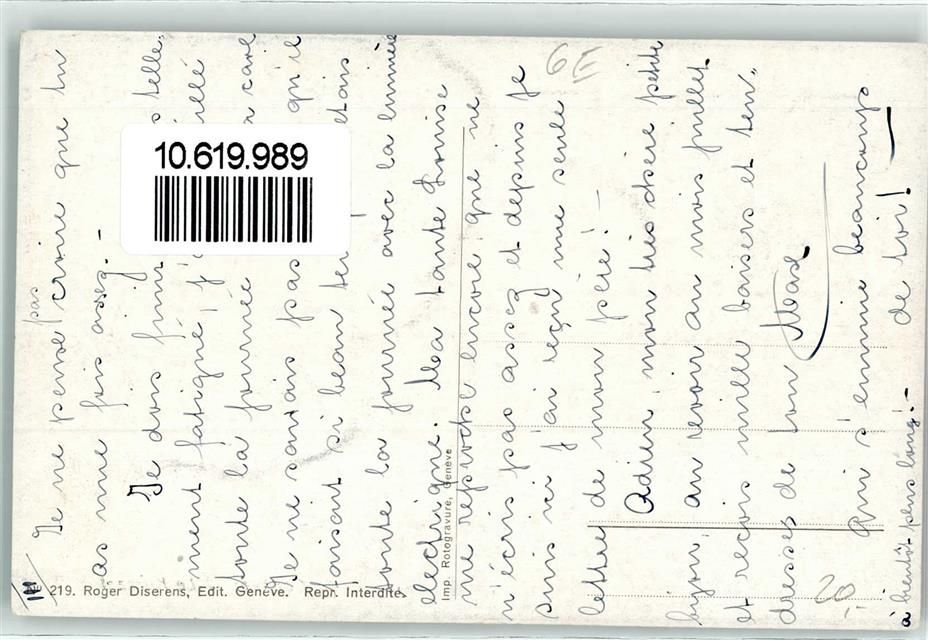 Je ne pense pas croire que tu
as une fois assez. -
Je dois finir telle-
ment fatigué, j'
toute la journée cave
Je ne savais pas qu'il
faisait si beau étais
toute la journée avec la lumière
electrique. Ma tante Louise
me reproche encore que ne
n'écris pas assez et depuis je
suis ici j'ai reçu une seule
lettre de mon père! -
Adieu, mon très chère petite
bijou au revoir au mois juillet
et reçois mille baisers et ten-
dresses de ton Max
qui s'ennuie beaucoup
de toi! -
à bientôt plus long! -
II
6 E
20,-
10.619.989
219. Roger Diserens, Edit. Genève. Repr. Interdite.
Imp. Rotogravure, Genève